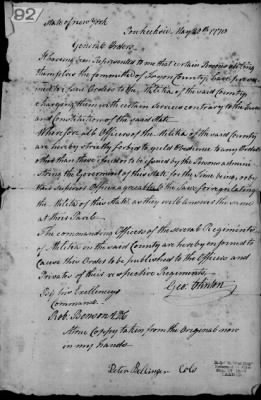 92
State of New York
Poukeehsie, May 20th 1778
General Orders
Whereas it has been Represented to me that certain Persons
the Committee of Tryon County, have presumed
to Issue Orders to the Militia of the said County
charging them with certain Services contrary to the Laws
and Constitution of the said State
Wherefore all Officers of the Militia of the said County
are hereby strictly forbid to yield Obedience to any Orders
other than those issued or to be issued by the Person admini
string the Government of this State for the time being, or by
their superior Officers agreeable to the Laws for regulating
the Militia of this State as they will answer the same
at their Peril.
The commanding Officers of the several Regiments
of Militia in the said County are hereby enjoined to
cause this Order to be published to the Officers and
Privates of their respective Regiments
Geo. Clinton
By his Excellencys
Command.
Rob. Benson
A true Coppy taken from the Original now
in my hands
Peter Bellinger Colo